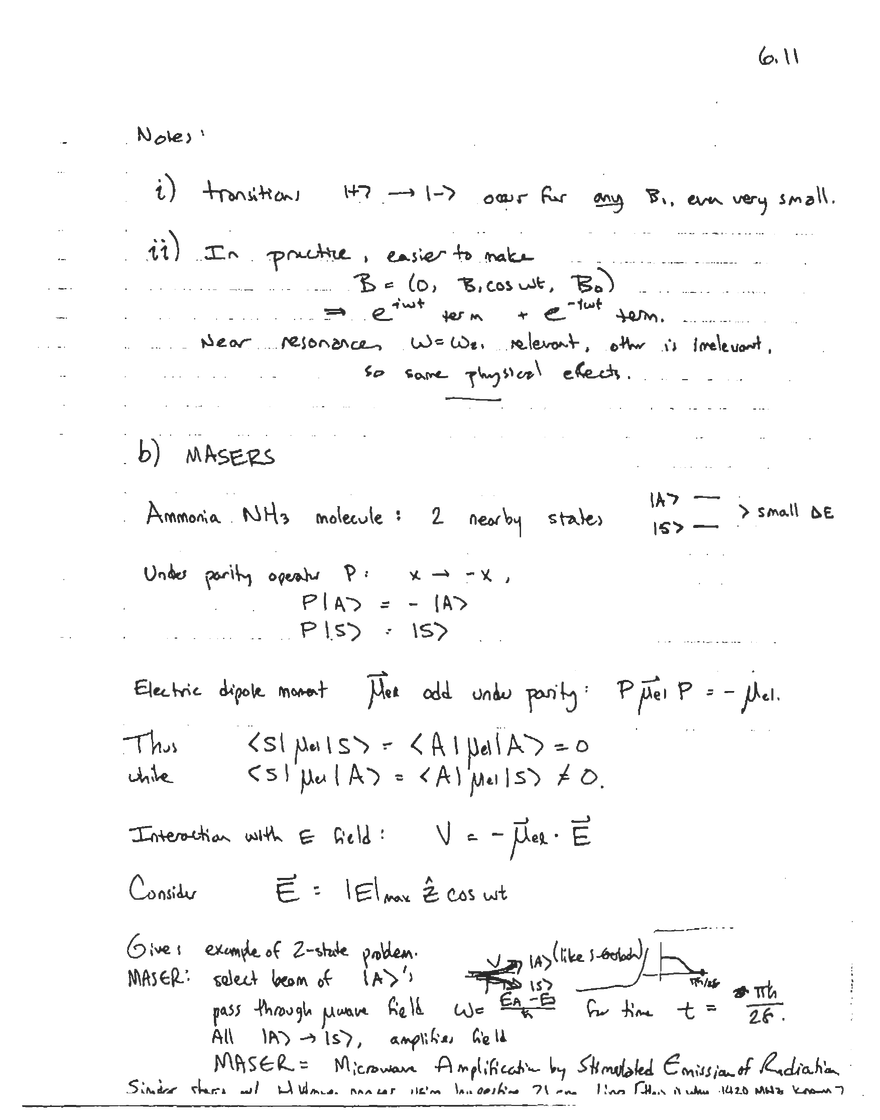 6.11
Notes:
i) transitions |+> → |-> occur for any B₁, even very small.
ii) In practice, easier to make
B = (0, B₁ cos ωt, B₀)
⇒ e^{iωt} term + e^{-iωt} term.
Near resonances, ω=ω₂₁ relevant, other is irrelevant,
so same physical effects.
b) MASERS
Ammonia NH₃ molecule: 2 nearby states |A> — > small ΔE
|S> —
Under parity operator P: x → -x,
P|A> = - |A>
P|S> = |S>
Electric dipole moment μ⃗el odd under parity: P μ⃗el P = - μel.
Thus <S| μel |S> = <A| μel |A> = 0
while <S| μel |A> = <A| μel |S> ≠ 0.
Interaction with E field: V = - μ⃗el · E⃗
Consider E⃗ = |E|max ẑ cos ωt
Gives example of 2-state problem.
MASER: select beam of |A>'s |A> (like S-G) |S> πħ/2δ
pass through μwave field ω= (E_A - E_S)/ħ for time t = πħ/2δ.
All |A> → |S>, amplifies field
MASER = Microwave Amplification by Stimulated Emission of Radiation
1420 MHz known